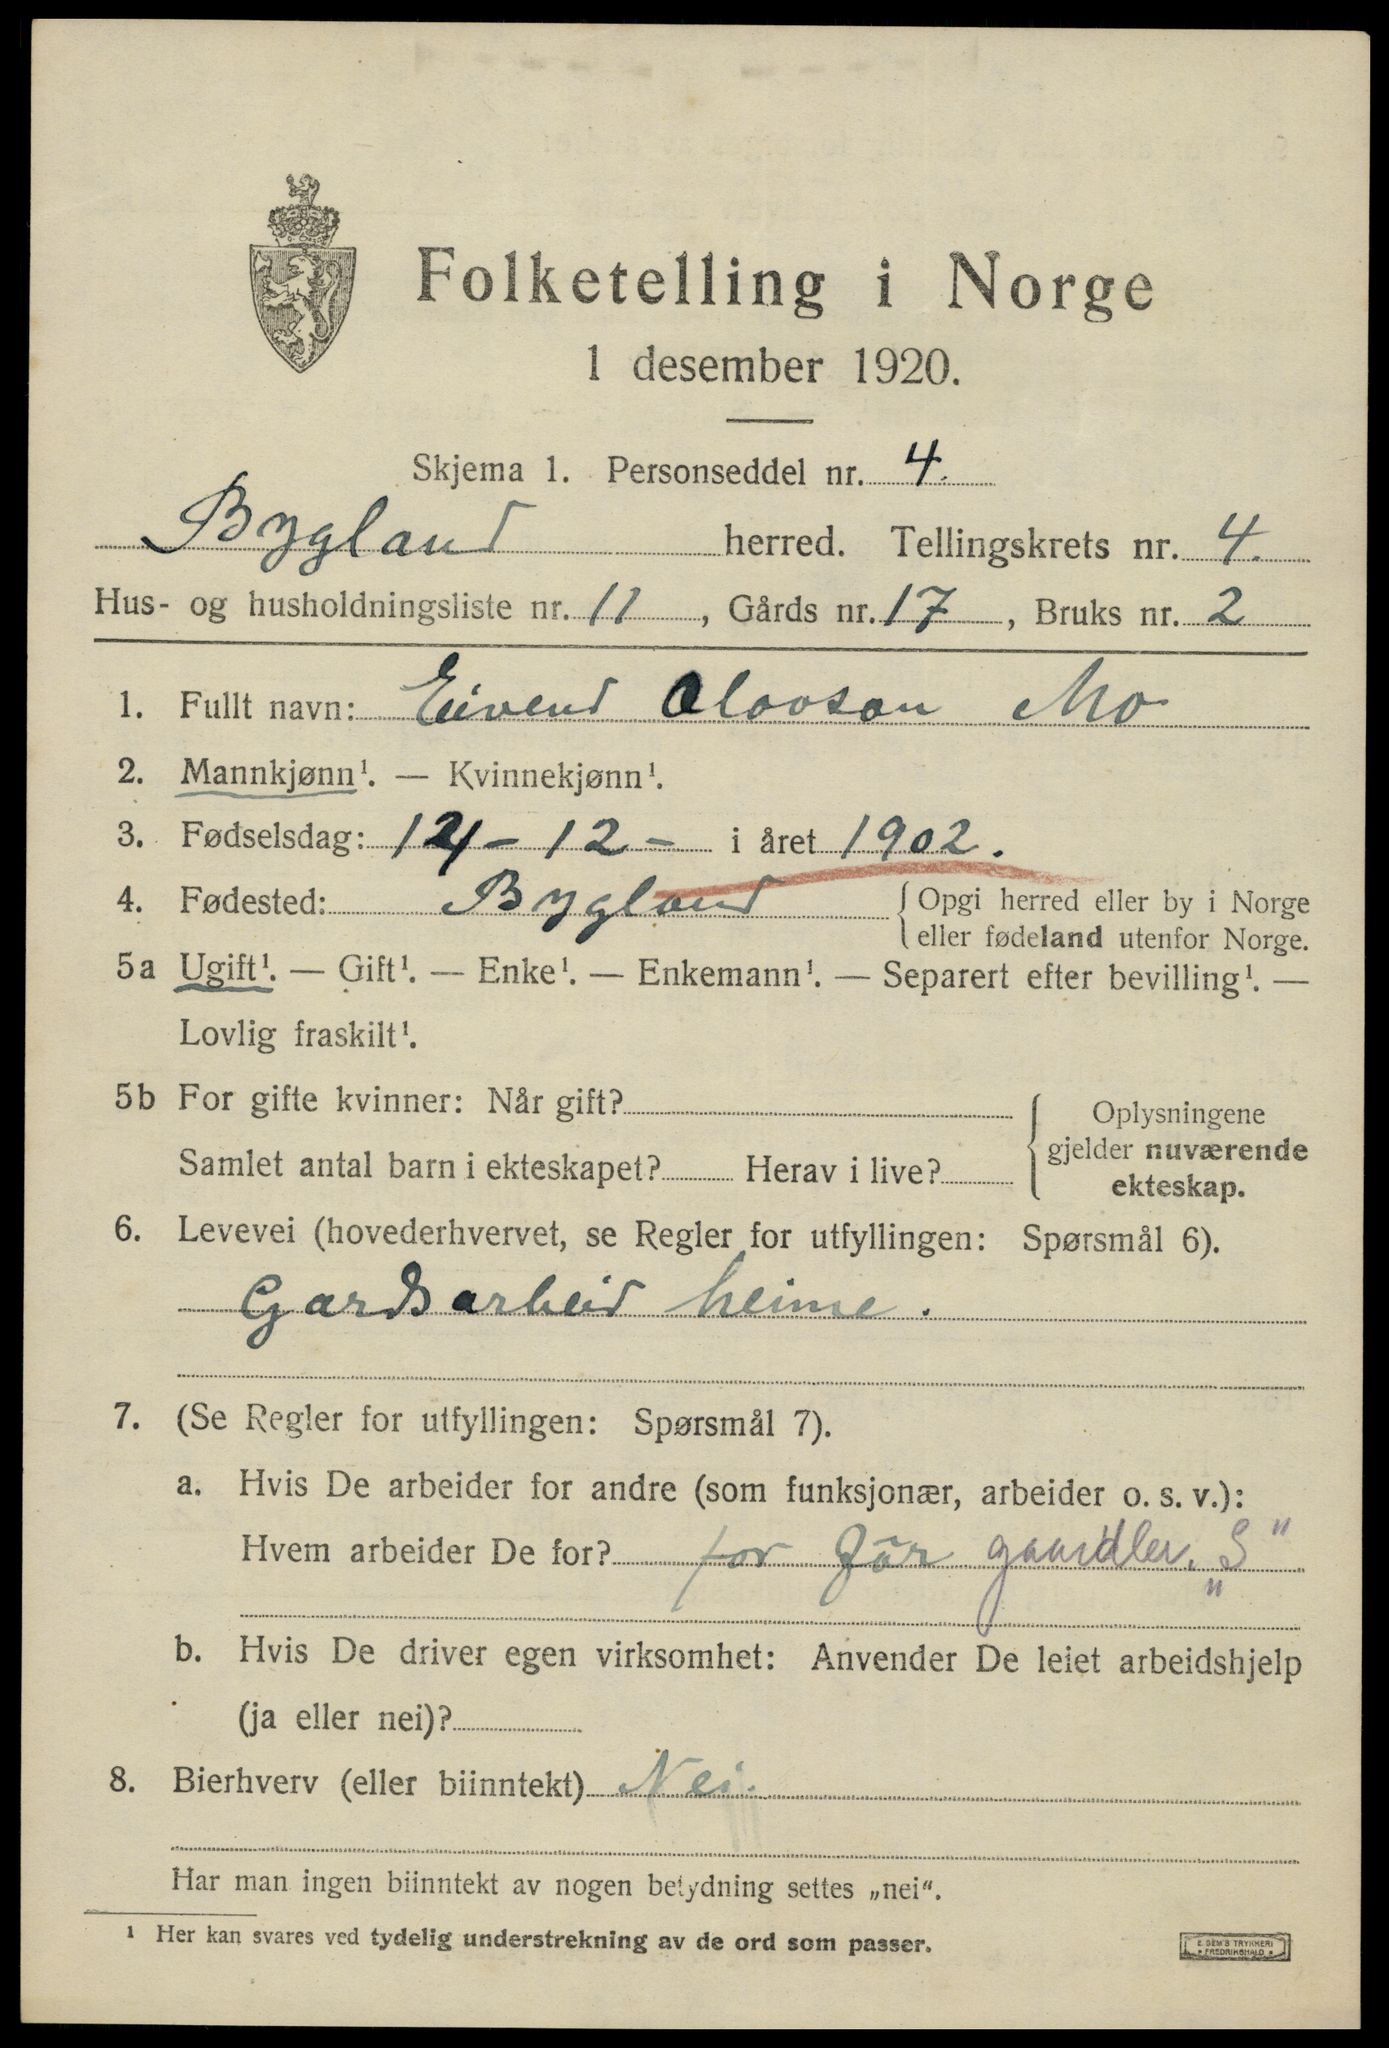 Folketelling i Norge
1 desember 1920.
Skjema 1. Personseddel nr. 4.
Bygland herred. Tellingskrets nr. 4.
Hus- og husholdningsliste nr. 11, Gårds nr. 17, Bruks nr. 2
1. Fullt navn: Eivend Olovson Mo
2. Mannkjønn¹. — Kvinnekjønn¹.
3. Fødselsdag: - 12 - i året 1902.
4. Fødested: Bygland { Opgi herred eller by i Norge
eller fødeland utenfor Norge.
5a Ugift¹. — Gift¹. — Enke¹. — Enkemann¹. — Separert efter bevilling¹. —
Lovlig fraskilt¹.
5b For gifte kvinner: Når gift? { Oplysningene
gjelder nuværende
Samlet antal barn i ekteskapet? Herav i live?
ekteskap.
6. Levevei (hovederhvervet, se Regler for utfyllingen: Spørsmål 6).
Gardsarbeid heime.
7. (Se Regler for utfyllingen: Spørsmål 7).
a. Hvis De arbeider for andre (som funksjonær, arbeider o. s. v.):
Hvem arbeider De for? for Får „S"
b. Hvis De driver egen virksomhet: Anvender De leiet arbeidshjelp
(ja eller nei)?
8. Bierhverv (eller biinntekt) Nei.
Har man ingen biinntekt av nogen betydning settes „nei“.
¹ Her kan svares ved tydelig understrekning av de ord som passer.
E. SEM'S TRYKKERI
FREDRIKSHALD